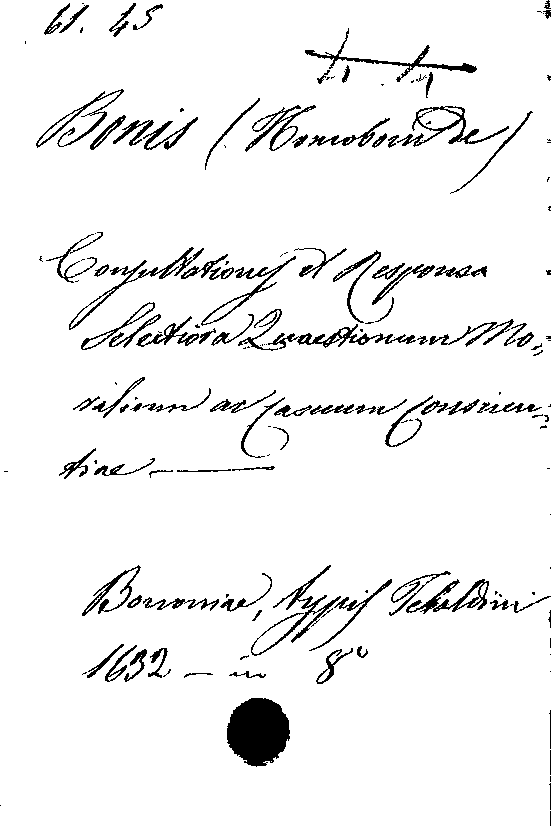 61. 45
Bonis (Homoboni De)
Consultationes et Responsa
Selectiora Quaestionum Mo-
ralium ac Casuum Conscien-
tiae
Bononiae, typis Tebaldini
1632 — in 8°